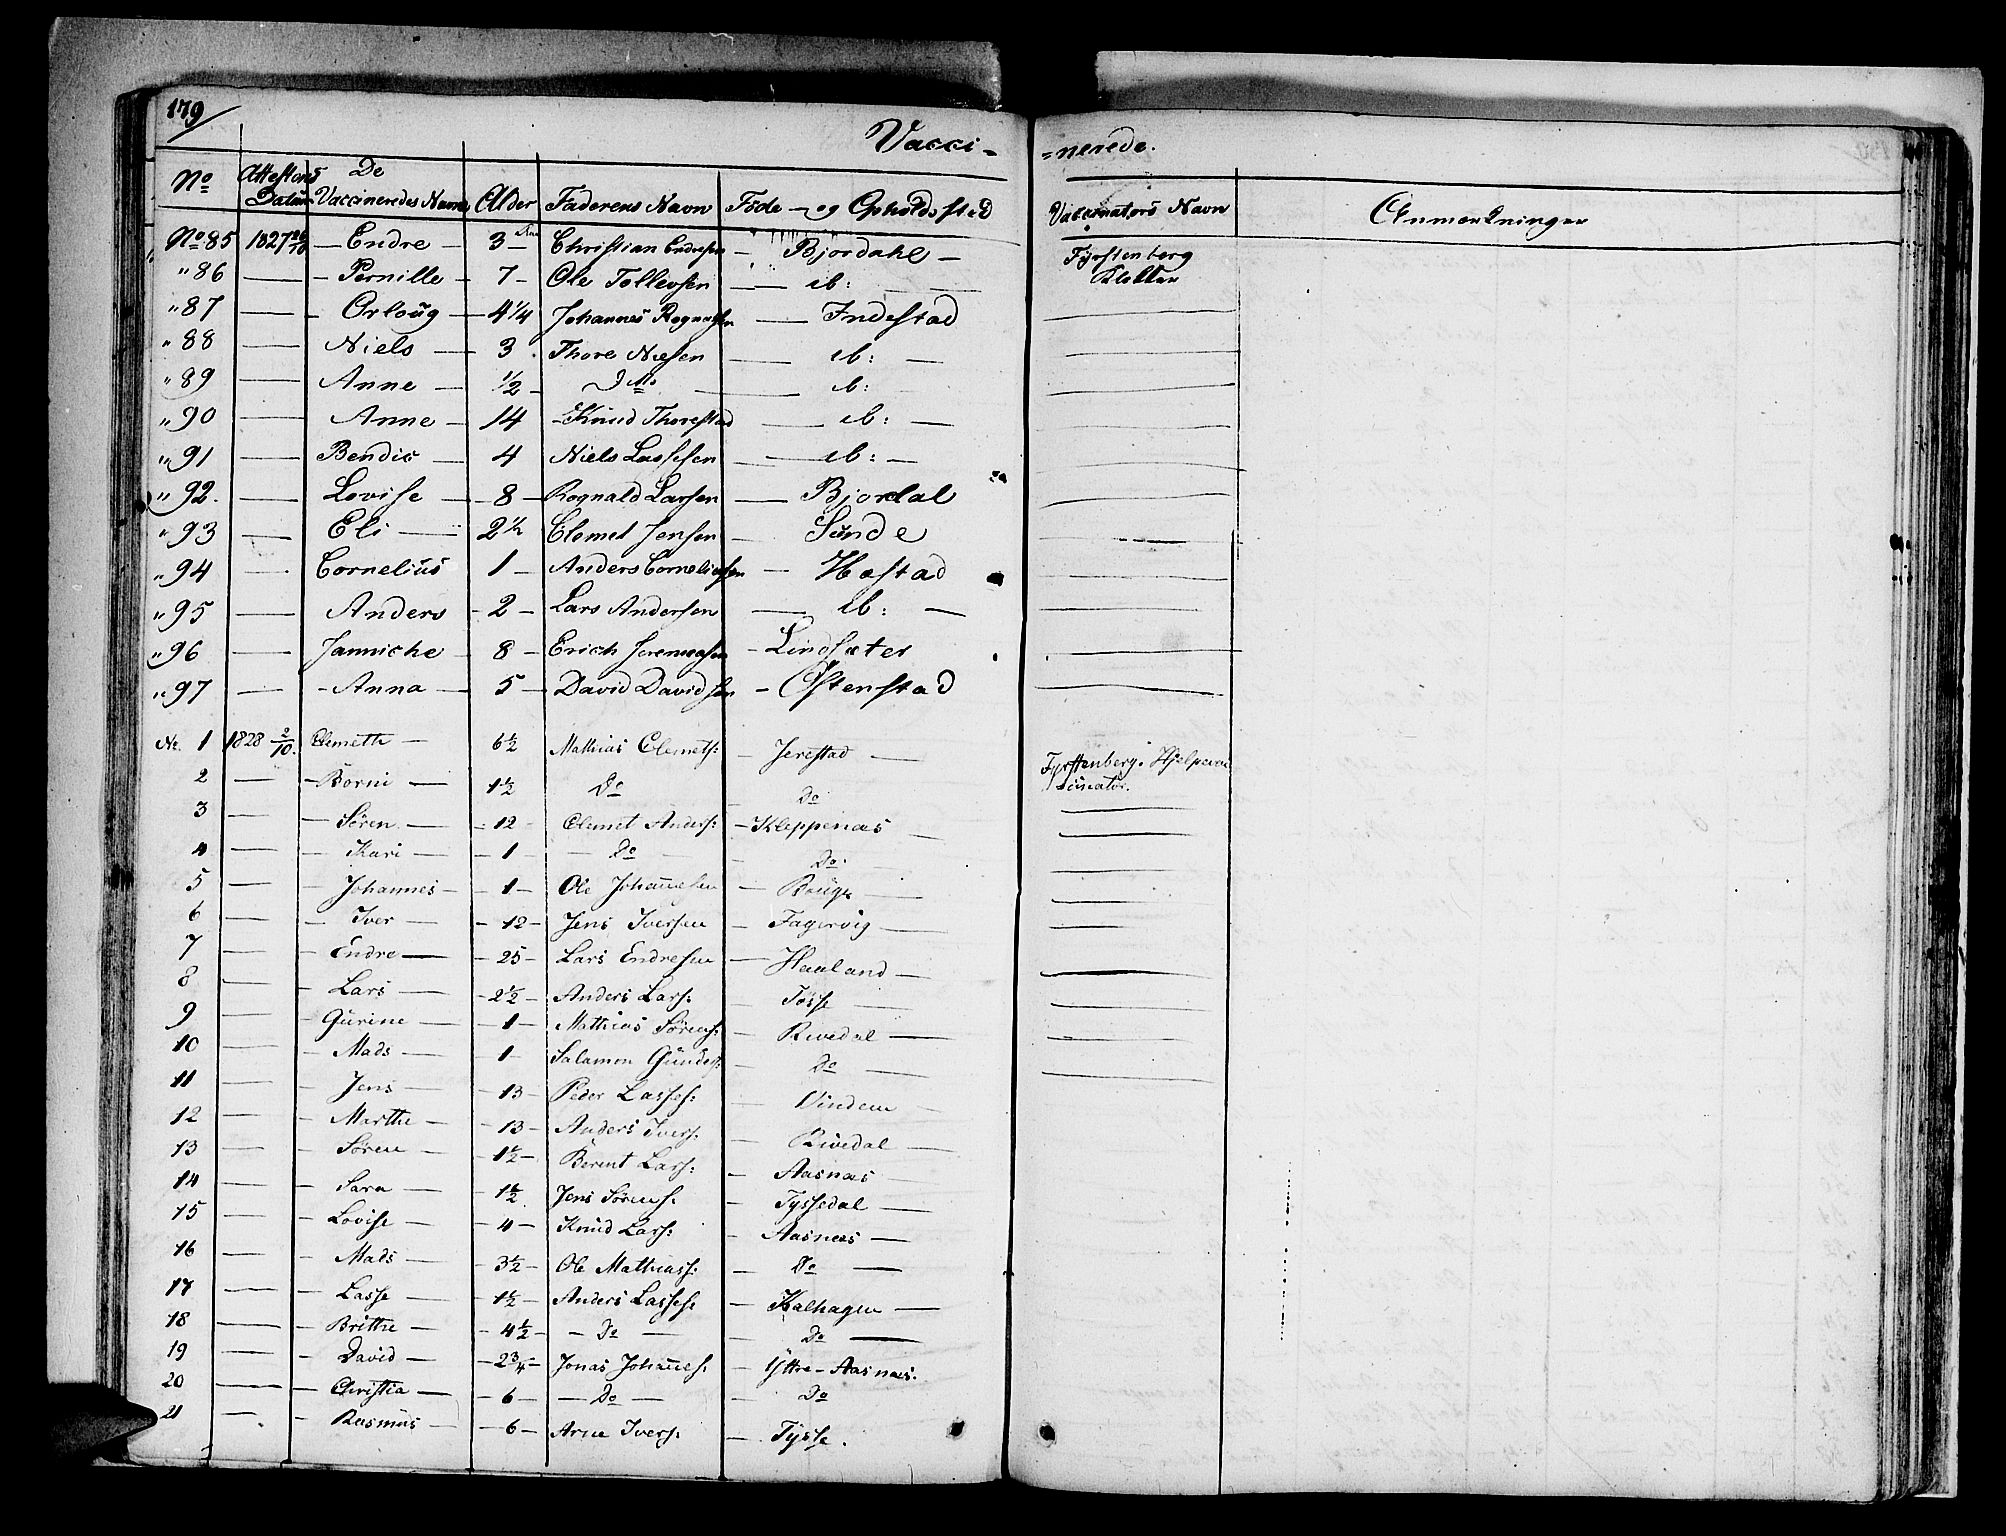 179
Vacci-
=nerede.
No Attestens Datum De Vaccineredes Navne Alder Faderens Navn Föde- og Opholdssted Vaccinateurs Navn Anmærkninger
No 85 1827 26/10 — Endre — 3 — Christian Endresen — Bjordahl — Fyrstenberg
Klokker
" 86 — Pernille — 7 — Ole Tollevsen — ib: —
" 87 — Orloug — 4 1/4 Johannes Rognaldsen — Indestad
" 88 — Niels — 3 . Thore Nielsen — ib: —
" 89 — Anne — 1/2 — Do — ib:
" 90 — Anne — 14 Knud Thorestad — ib: —
" 91 — Bendic — 4 Niels Lassesen — ib: —
" 92. — Lovise — 8 — Rognald Larsen — Bjordal
" 93 — Eli — 2 1/2 Clemet Jensen — Sunde
" 94 — Cornelius 1 — Anders Corneliussen — Hæstad
" 95 — Anders — 2 — Lars Andersen — ib: —
" 96 — Jannicke — 8 — Erich Jeremiasen — Lindsæter
" 97 — Anna — 5 — David Davidsen — Ostenstad
No. 1 1828 2/10. Clemeth — 6 1/2 Mathias Clemets: — Jerestad — Fyrstenberg. Hjelpevac
cinator.
2 — Borni — 1 1/2 Do — Do
3 — Sören — 12 Clemet Anders: — Kleppenæs —
4 — Kari — 1 — Do — Do
5 — Johannes — 1 — Ole Johannesen — Bouge —
6 — Iver — 12 — Jens Iversen — Fagervig —
7 — Endre — 25 — Lars Endresen — Haaland —
8 — Lars — 2 1/2 — Anders Lars: Tosse —
9 — Gurine — 1 — Mathias Sörens: Rivedal —
10 — Mads — 1 Salamon Gunders: Do —
11 — Jens — 13 — Peder Lasses: Vindem —
12 — Marthe — 13 — Anders Ivers. — Rivedal —
13 — Sören — 1 1/2 — Berent Lars: — Aasnæs —
14 — Sara — 1 1/2 Jens Sörens: — Tyssedal —
15 — Lovise — 4 — Knud Lars: — Aasnæs —
16 — Mads — 3 1/2 — Ole Mathiass: — Do —
17 — Lasse — 1 1/2 — Anders Lasses: — Kalhagen —
18 — Brithe — 4 1/2 — Do — Do —
19 — David — 2 3/4 — Jonas Johannes: — Yttre-Aasnæs.
20 — Christia — 6 — Do — Do
21 — Rasmus — 6 — Arne Ivers: — Tysse.